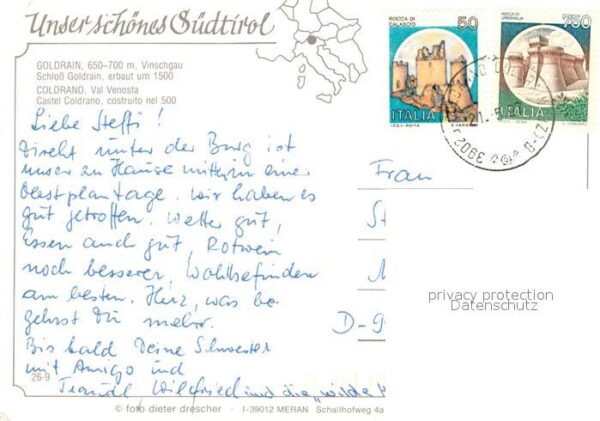 Unser schönes Südtirol
GOLDRAIN, 650–700 m, Vinschgau
Schloß Goldrain, erbaut um 1500
COLDRANO, Val Venosta
Castel Coldrano, costruito nel 500
Liebe Steffi!
Direkt unter der Burg ist
unser zu Hause mitten in einer
Obstplantage. Wir haben es
gut getroffen. Wetter gut,
Essen auch gut, Rotwein
noch besserer, Wohlbefinden
am besten. Herz, was be
gehrst Du mehr.
Bis bald Deine Schwester
mit Amigo und
Traudl, Wilfried und die „wilde
26-9
© foto dieter drescher · I-39012 MERAN Schallhofweg 4a
ROCCA DI CALASCIO
50
ITALIA
ROCCA DI URBISAGLIA
750
ITALIA
Frau
D-9
privacy protection
Datenschutz